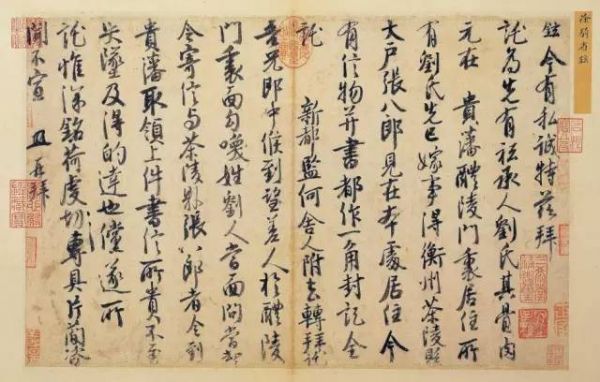 徐騎省鉉
鉉今有私誠特茲拜
託為先有祗承人劉氏其骨肉
元在 貴藩醴陵門裏居住所
有劉氏先已嫁事得衡州茶陵縣
大户張八郎見在本處居住今
有信物并書都作一角封記全
託 新都監何舍人附去轉拜託
吾兄郎中候到望差人於醴陵
門裏面勾喚姓劉人當面問當却
令寄信与茶陵縣張八郎者令到
貴藩取領上件書信所貴不至
失墜及得的達也儻遂所
託惟深銘荷虔切專具片簡咨
聞不宣 鉉再拜